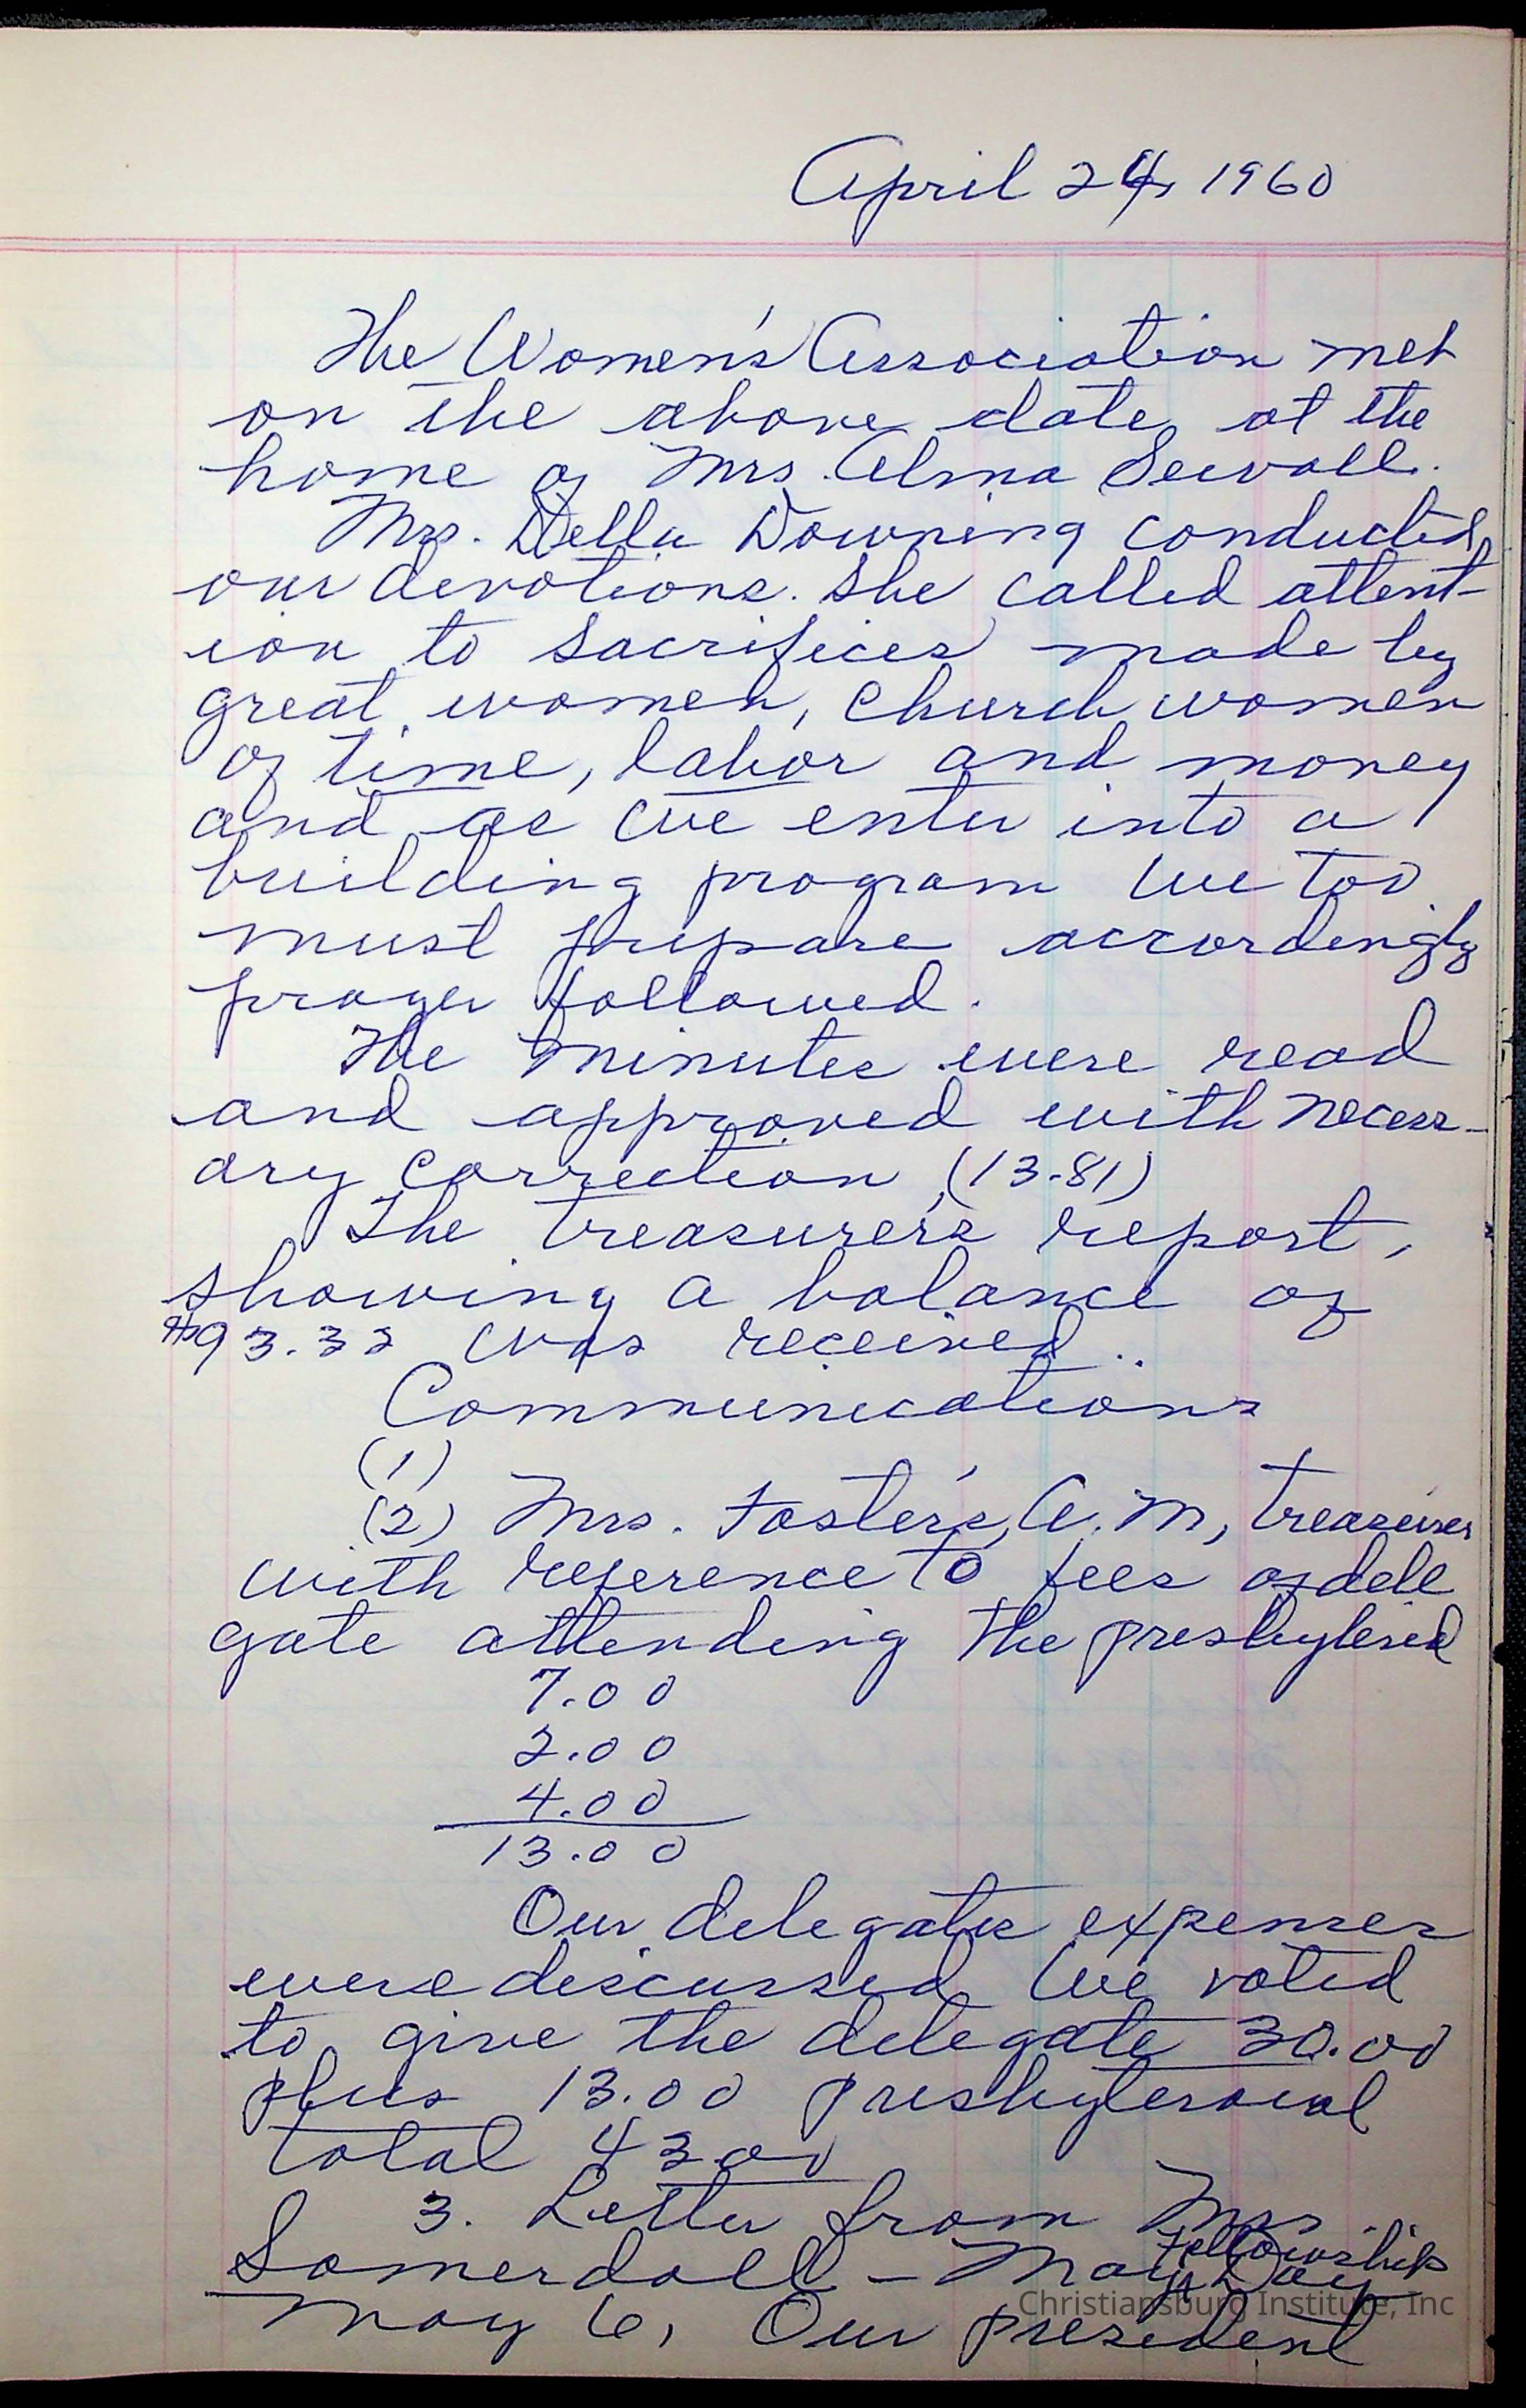 April 24, 1960
The Women's Association met
on the above date, at the
home of Mrs. Alma Sewall.
Mrs. Della Downing conducted
our devotions. She called attent-
ion to sacrifices made by
great women, church women
of time, labor and money
and as we enter into a
building program we too
must prepare accordingly
prayer followed.
The minutes were read
and approved with necess-
ary correction (13.81)
The treasurer's report,
showing a balance of
$93.32 was received.
Communications
(1)
(2) Mrs. Foster's, A.M, treasurer
with reference to fees of dele
gate attending the presbyterial
7.00
2.00
4.00
13.00
Our delegates expenses
were discussed we voted
to give the delegate 30.00
plus 13.00 presbyteroial
total 43.00
3. Letter from Mrs.
Somerdall - May Fellowship Day
May 6, Our president
Christiansburg Institute, Inc